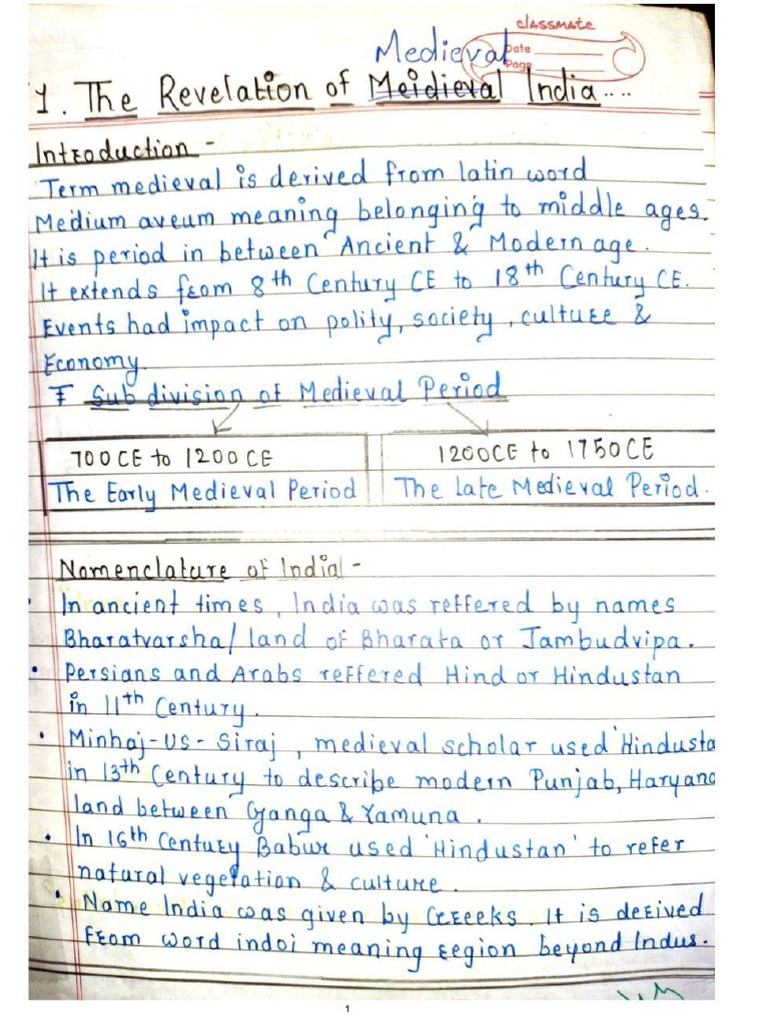 classmate
Date
Page
Medieval
1. The Revelation of Meidieval India....
Introduction -
Term medieval is derived from latin word
Medium aveum meaning belonging to middle ages.
It is period in between Ancient & Modern age.
It extends from 8th Century CE to 18th Century CE.
Events had impact on polity, society, culture &
Economy.
Sub division of Medieval Period
700 CE to 1200 CE
The Early Medieval Period
1200CE to 1750 CE
The Late Medieval Period.
Nomenclature of India -
• In ancient times, India was reffered by names
Bharatvarsha/ land of Bharata or Jambudvipa.
• Persians and Arabs reffered Hind or Hindustan
in 11th Century.
• Minhaj-us-Siraj, medieval scholar used 'Hindusta
in 13th Century to describe modern Punjab, Haryana
land between Ganga & Yamuna.
• In 16th Century Babur used 'Hindustan' to refer
natural vegetation & culture.
• Name India was given by Greeeks. It is derived
from word indoi meaning region beyond Indus.
1